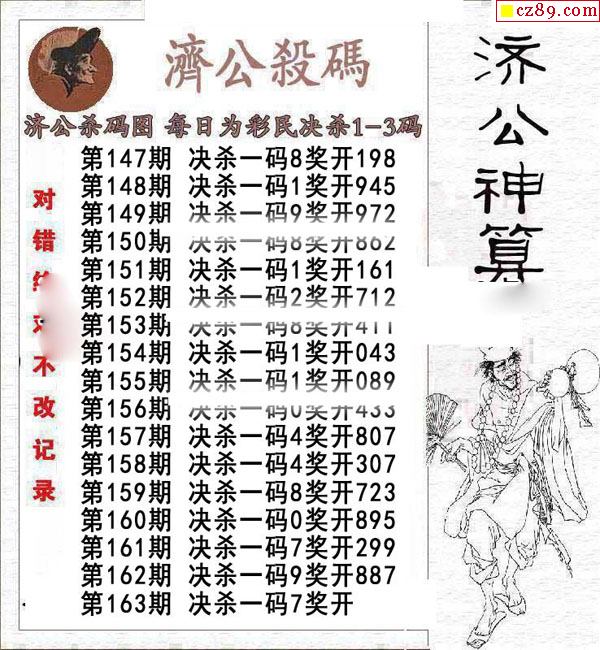 cz89.com
濟公殺碼
济公杀码图 每日为彩民决杀1-3码
第147期 决杀一码8奖开198
第148期 决杀一码1奖开945
第149期 决杀一码9奖开972
第150期 决杀一码8奖开862
第151期 决杀一码1奖开161
第152期 决杀一码2奖开712
第153期 决杀一码8奖开411
第154期 决杀一码1奖开043
第155期 决杀一码1奖开089
第156期 决杀一码0奖开433
第157期 决杀一码4奖开807
第158期 决杀一码4奖开307
第159期 决杀一码8奖开723
第160期 决杀一码0奖开895
第161期 决杀一码7奖开299
第162期 决杀一码9奖开887
第163期 决杀一码7奖开
对错 不改记录
济公神算